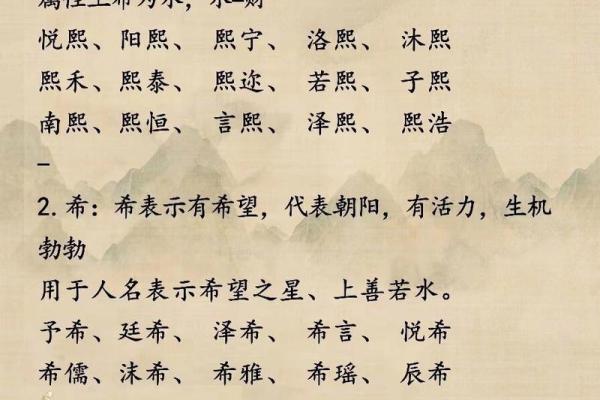 属性上希为水，水–财
悦熙、阳熙、 熙宁、 洛熙、 沐熙
熙禾、熙泰、 熙迩、 若熙、 子熙
南熙、熙恒、 言熙、 泽熙、 熙浩
–
2.希：希表示有希望，代表朝阳，有活力，生机
勃勃
用于人名表示希望之星、上善若水。
予希、廷希、 泽希、 希言、 悦希
希儒、沫希、 希雅、 希瑶、 辰希